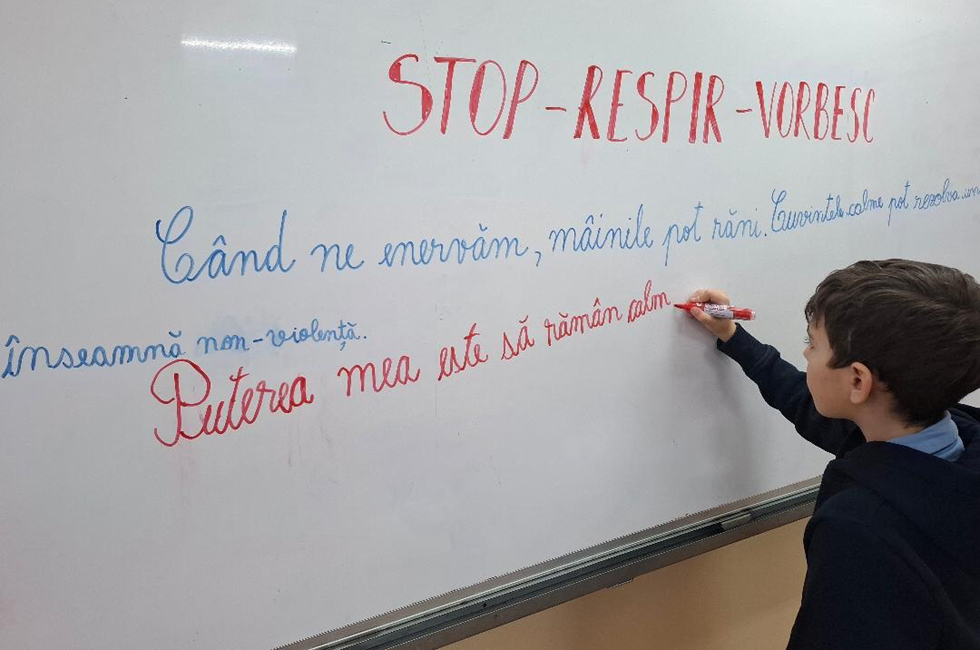 STOP-RESPIR-VORBESC
Când ne enervăm, mâinile pot răni. Cuvintele calme pot rezolva
înseamnă non-violență.
Puterea mea este să rămân calm